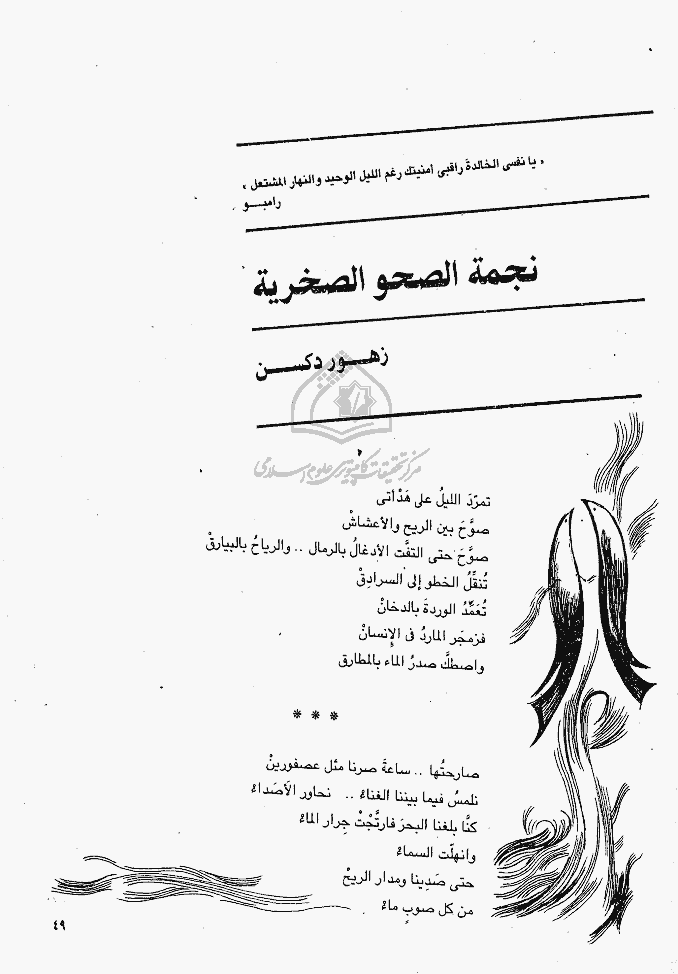 « يا نفسى الخالدة راقبى أمنيتك رغم الليل الوحيد والنهار المشتعل »
رامبـــو
نجمة الصحو الصخرية
زهــور دكســن
مركز تحقيقات كامپيوتری علوم اسلامی
تمرّدَ الليلُ على هَدْأتى
صوَّحَ بين الريح والأعشاشْ
صوَّحَ حتى التفَّت الأدغالُ بالرمال .. والرياحُ بالبيارقْ
تُنقّلُ الخطو إلى السرادِقْ
تُعَمِّدُ الوردةَ بالدخانْ
فزمجَر الماردُ فى الإِنسانْ
واصطكَّ صدرُ الماء بالمطارق
* * *
صارحتُها .. ساعةَ صرنا مثل عصفورينْ
نلمسُ فيما بيننا الغناءْ .. نحاور الأصداءْ
كنَّا بلغنا البحرَ فارتَّجْتْ جِرار الماءْ
وانهلّت السماءْ
حتى صَدِينا ومدار الريحْ
من كل صوبٍ ماءْ
٤٩